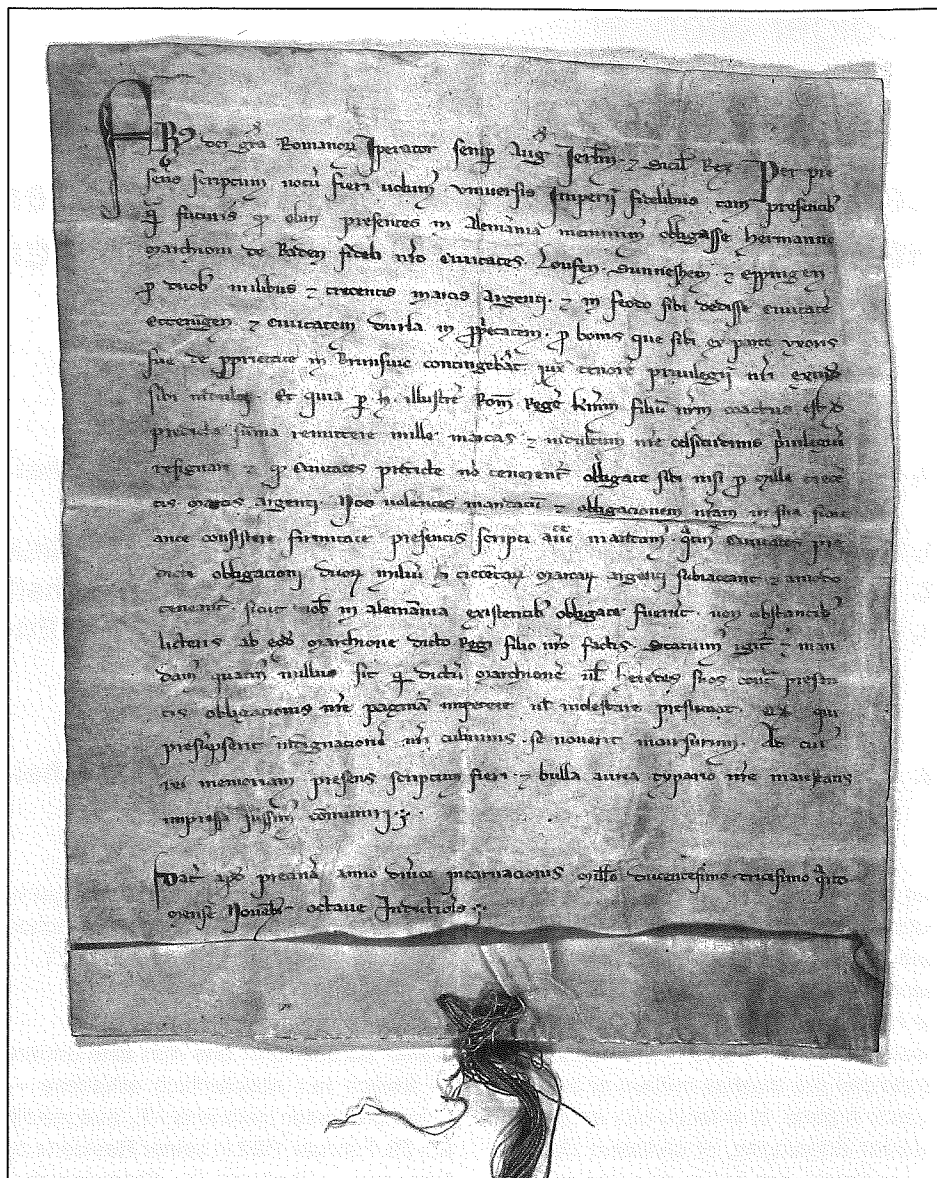 FR dei gra Romanor Imperator semp Aug Jerlm ⁊ Sicil Rex Per pre
sens scriptum notu fieri volum vniuersis Imperij fidelibus tam presentib
q futuris qd olim presentes in Alemania meminim obligasse hermanno
marchioni de Baden fideli nro Ciuitates Loufen Sunneshem ⁊ eppingen
p duob milibus ⁊ trecentis marcis Argenti ⁊ in feodo sibi dedisse ciuitate
ettenigen ⁊ ciuitatem durla in pprietatem p bonis que sibi ex parte vxoris
sue de pprietate in Brunsuic contingebat iux tenore priuilegij nri
sibi Et quia p h illustre Rom Rege filiu nrm coactus est de
predicta suma remittere mille marcas ⁊ nre celsitudinis priuilegiu
resignare ⁊ qd Ciuitates predicte no tenerent obligate sibi nisi p mille trece
tis marcis argenti Nos volentes ⁊ obligacionem nram in sua
consistere firmitate presentis scripti auct mandam qtin Ciuitates pre
dicte obligacioni duor miliu ⁊ trecentar marcar argenti subiaceant ⁊
teneant sicut nob in alemania existentib obligate fuerut non obstantib
litteris ab eod marchione dicto Regi filio nro factis Statuim igit ⁊ man
dam quatin nullus sit q dictu marchione ul heredes suos cont presen
tis obligacionis nre pagina impetere ul molestare presumat qui
presupserit indignacione nri culminis se nouerit incursurum Ad cui
rei memoriam presens scriptum fieri ⁊ bulla aurea typario nre maiestatis
impressa jussim comuniri
Dat apd precina anno dnice incarnacionis mill ducentesimo tricesimo qnto
mense Nouebr octaue Indictiois